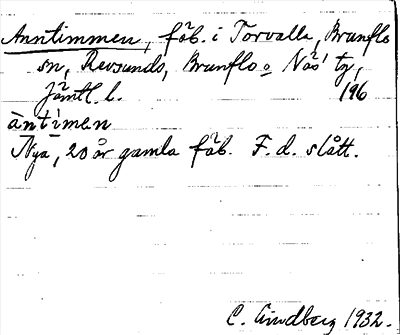 Anntimmen, fäb. i Torvalla, Brunflo
sn, Revsunds, Brunflo o Näs' tg,
Jämtl. l. 196
àntimen
Nya, 20 år gamla fäb. F. d. slått.
C. Lindberg 1932.